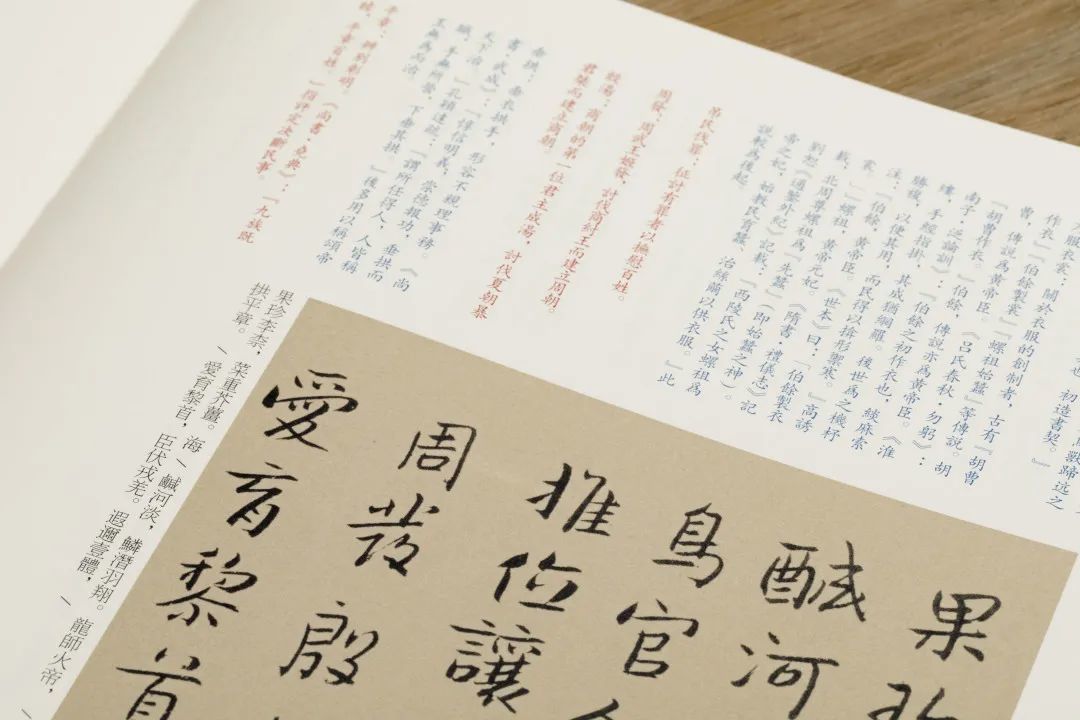 作衣」「伯餘製裳」「螺祖始蠶」等傳說。胡
曹,傳說為黃帝臣。《呂氏春秋·勿躬》:
「胡曹作衣。」伯餘,傳說亦為黃帝臣。《淮
南子·氾論訓》:「伯餘之初作衣也,緂麻索
縷,手經指掛,其成猶網羅。後世為之機杼
勝複,以便其用,而民得以揜形禦寒。」高誘
注:「伯餘,黃帝臣。《世本》曰:『伯餘製衣
裳。』」螺祖,黃帝元妃。《隋書·禮儀志》記
載,北周尊螺祖為「先蠶」(即始蠶之神)。
劉恕《通鑒外紀》記載:「西陵氏之女螺祖為
帝之妃,始教民育蠶,治絲繭以供衣服。」此
說較為後起。
弔民伐罪:征討有罪者以撫慰百姓。
周發:周武王姬發,討伐商紂王而建立周朝。
殷湯:商朝的第一位君主成湯,討伐夏朝暴
君桀而建立商朝。
垂拱:垂衣拱手,形容不親理事務。《尚
書·武成》:「惇信明義,崇德報功,垂拱而
天下治。」孔穎達疏:「謂所任得人,人皆稱
職,手無所營,下垂其拱。」後多用以稱頌帝
王無為而治。
平章:辨別彰明。《尚書·堯典》:「九族既
睦,平章百姓。」一指評定決斷民事。
果珍李柰,菜重芥薑。海鹹河淡,鱗潛羽翔。龍師火帝,
拱平章。愛育黎首,臣伏戎羌。遐邇壹體,
果珍
鹹河
鳥官
推位讓
周發殷
愛育黎首